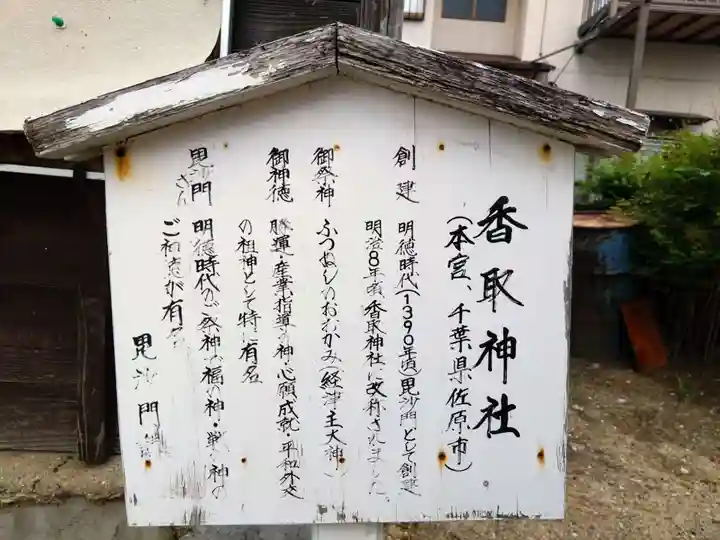 香取神社
(本宮、千葉県佐原市)
創建 明徳時代(1390年頃)毘沙門として創建
明治8年頃香取神社に改称されました。
御祭神 ふつぬしのおおかみ(経津主大神)
御神徳 勝運・産業指導の神・心願成就・平和外交
の祖神として特に有名
毘沙門さん 明徳時代のご祭神は福の神・戦の神の
ご神徳が有名
毘沙門